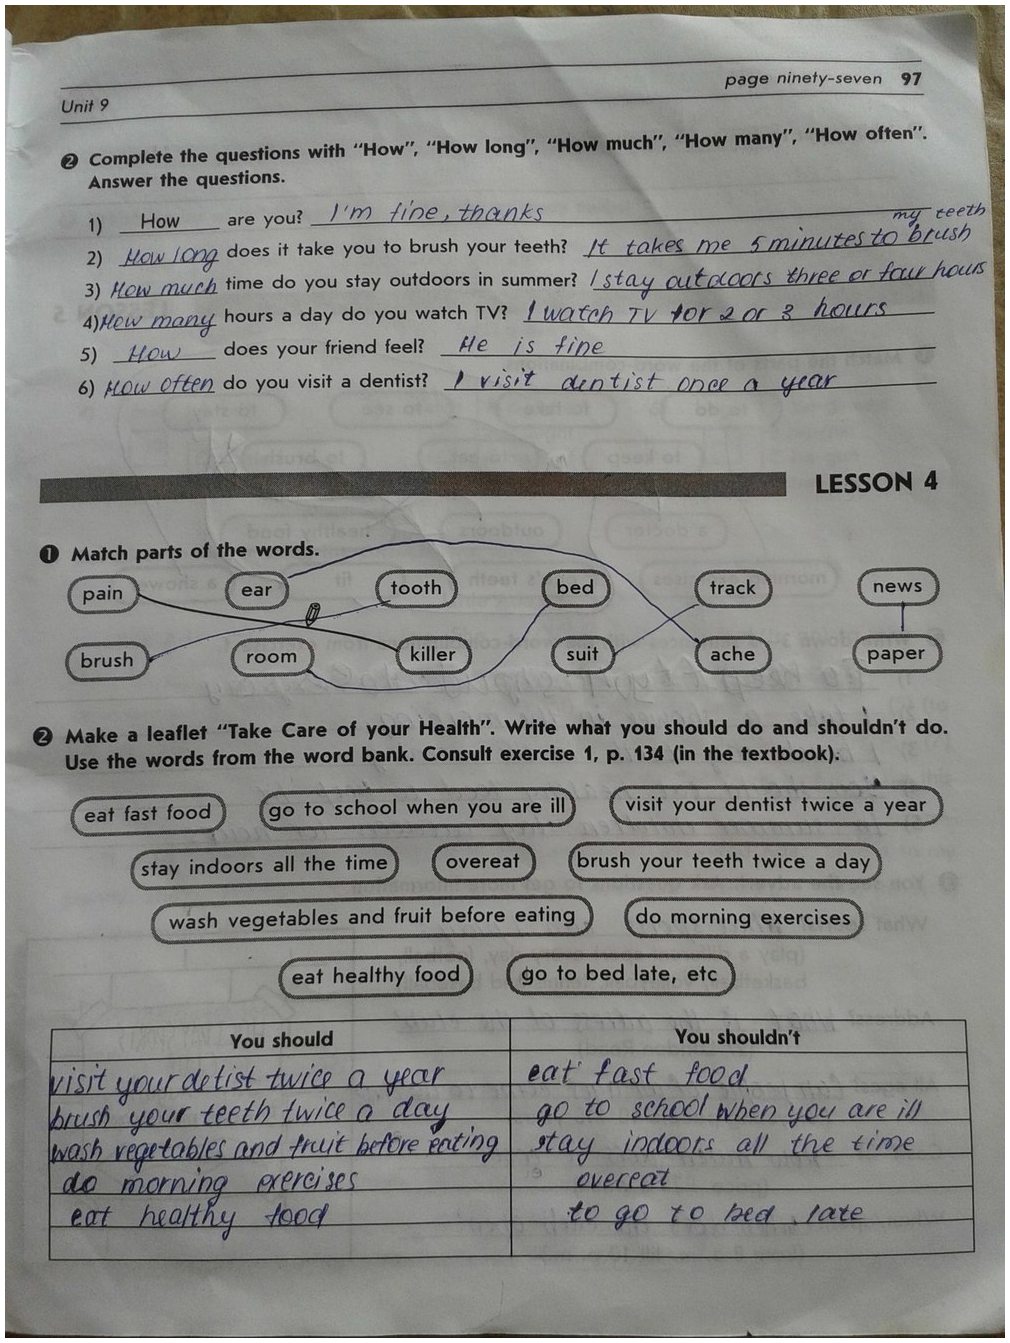 page ninety-seven 97
Unit 9
2 Complete the questions with “How”, “How long”, “How much”, “How many”, “How often”.
Answer the questions.
1) How are you? I'm fine, thanks
my teeth
2) How long does it take you to brush your teeth? It takes me 5 minutes to brush
3) How much time do you stay outdoors in summer? I stay outdoors three or four hours
4) How many hours a day do you watch TV? I watch TV for 2 or 3 hours
5) How does your friend feel? He is fine
6) How often do you visit a dentist? I visit dentist once a year
LESSON 4
1 Match parts of the words.
pain ear tooth bed track news
brush room killer suit ache paper
2 Make a leaflet “Take Care of your Health”. Write what you should do and shouldn't do.
Use the words from the word bank. Consult exercise 1, p. 134 (in the textbook).
eat fast food go to school when you are ill visit your dentist twice a year
stay indoors all the time overeat brush your teeth twice a day
wash vegetables and fruit before eating do morning exercises
eat healthy food go to bed late, etc
You should You shouldn't
visit your detist twice a year eat fast food
brush your teeth twice a day go to school when you are ill
wash vegetables and fruit before eating stay indoors all the time
do morning exercises overeat
eat healthy food to go to bed late